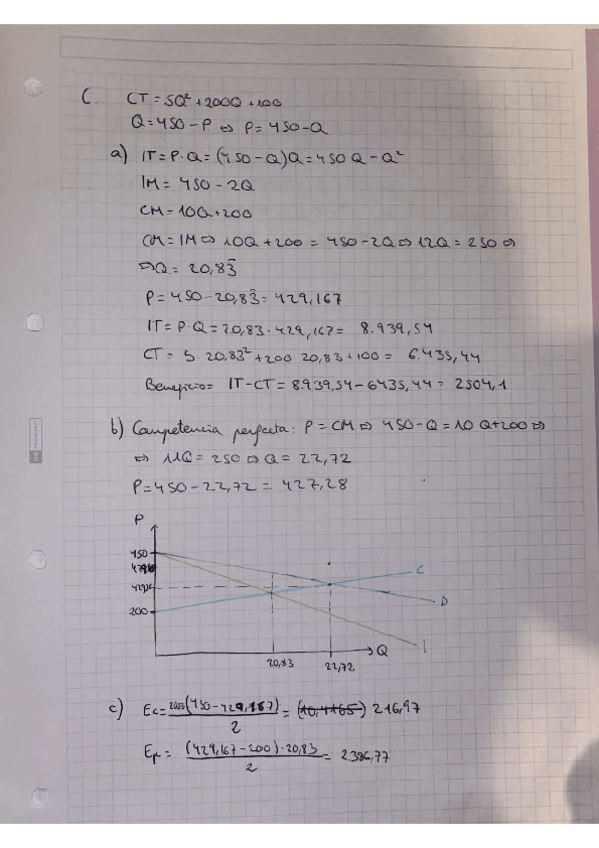 C. CT = 5Q² + 200Q + 100
Q = 450 - P ⇔ P = 450 - Q
a) IT = P·Q = (450 - Q)Q = 450Q - Q²
IM = 450 - 2Q
CM = 10Q + 200
CM = IM ⇔ 10Q + 200 = 450 - 2Q ⇔ 12Q = 250 ⇔
⇔ Q = 20,83̄
P = 450 - 20,83̄ = 429,167
IT = P·Q = 20,83 · 429,167 = 8.939,54
CT = 5·20,83² + 200 20,83 + 100 = 6.435,44
Beneficio = IT - CT = 8.939,54 - 6435,44 = 2504,1
b) Competencia perfecta: P = CM ⇔ 450 - Q = 10Q + 200 ⇔
⇔ 11Q = 250 ⇔ Q = 22,72
P = 450 - 22,72 = 427,28
P
450
200
C
D
I
Q
20,83
22,72
c) Ec = 20,83(450 - 429,167) / 2 = (10,4165) 216,97
Ep = (429,167 - 200)·20,83 / 2 = 2386,77